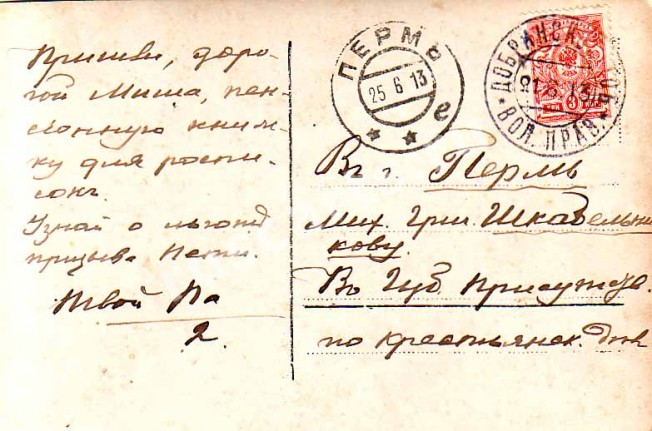 Пришли, доро-
гой Миша, пен-
сіонную книж-
ку для роспи-
сокъ.
Узнай о льготѣ
призыва Пети.
Твой Па
2.
ПЕРМЬ
25 6 13
е
ДОБРЯНСК
ВОЛ. ПРАВ.
Въ г. Пермь
Мих. Григ. Шкабельни
кову.
Въ Губ. Присутств.
по крестьянск.